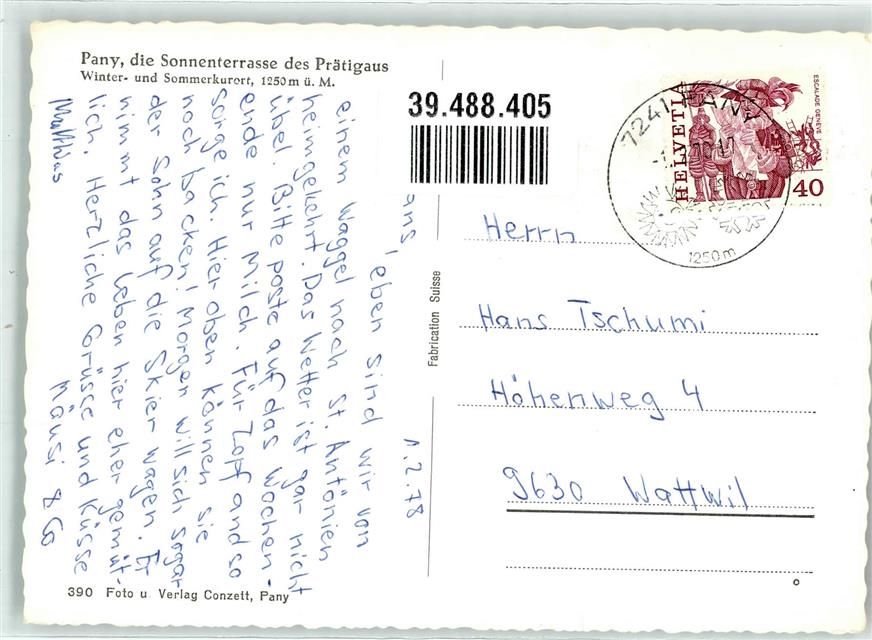 Pany, die Sonnenterrasse des Prätigaus
Winter- und Sommerkurort, 1250 m ü. M.
39.488.405
HELVETIA
ESCALADE GENEVE
40
7241 PANY
1250 m
1.2.78
ans, eben sind wir von
einem Waggel nach St. Antönien
heimgekehrt. Das Wetter ist gar nicht
übel. Bitte poste auf das Wochen-
ende nur Milch. Für Zopf and so
sorge ich. Hier oben können sie
noch backen! Morgen will sich sogar
der Sohn auf die Skier wagen. Er
nimmt das Leben hier eher gemüt-
lich. Herzliche Grüsse und Küsse
Mäusi & Co
Matthias
Fabrication Suisse
Herrn
Hans Tschumi
Höhenweg 4
9630 Wattwil
390 Foto u. Verlag Conzett, Pany